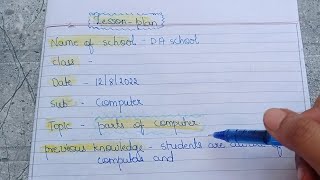 Lesson-plan
Name of school - DA school
class -
Date - 12/8/2022
Sub - Computer
Topic - parts of computer
previous knowledge - students are of
computers and